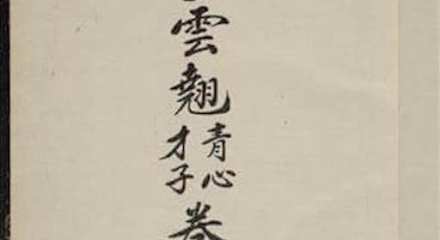 雲翹
青心
才子
卷